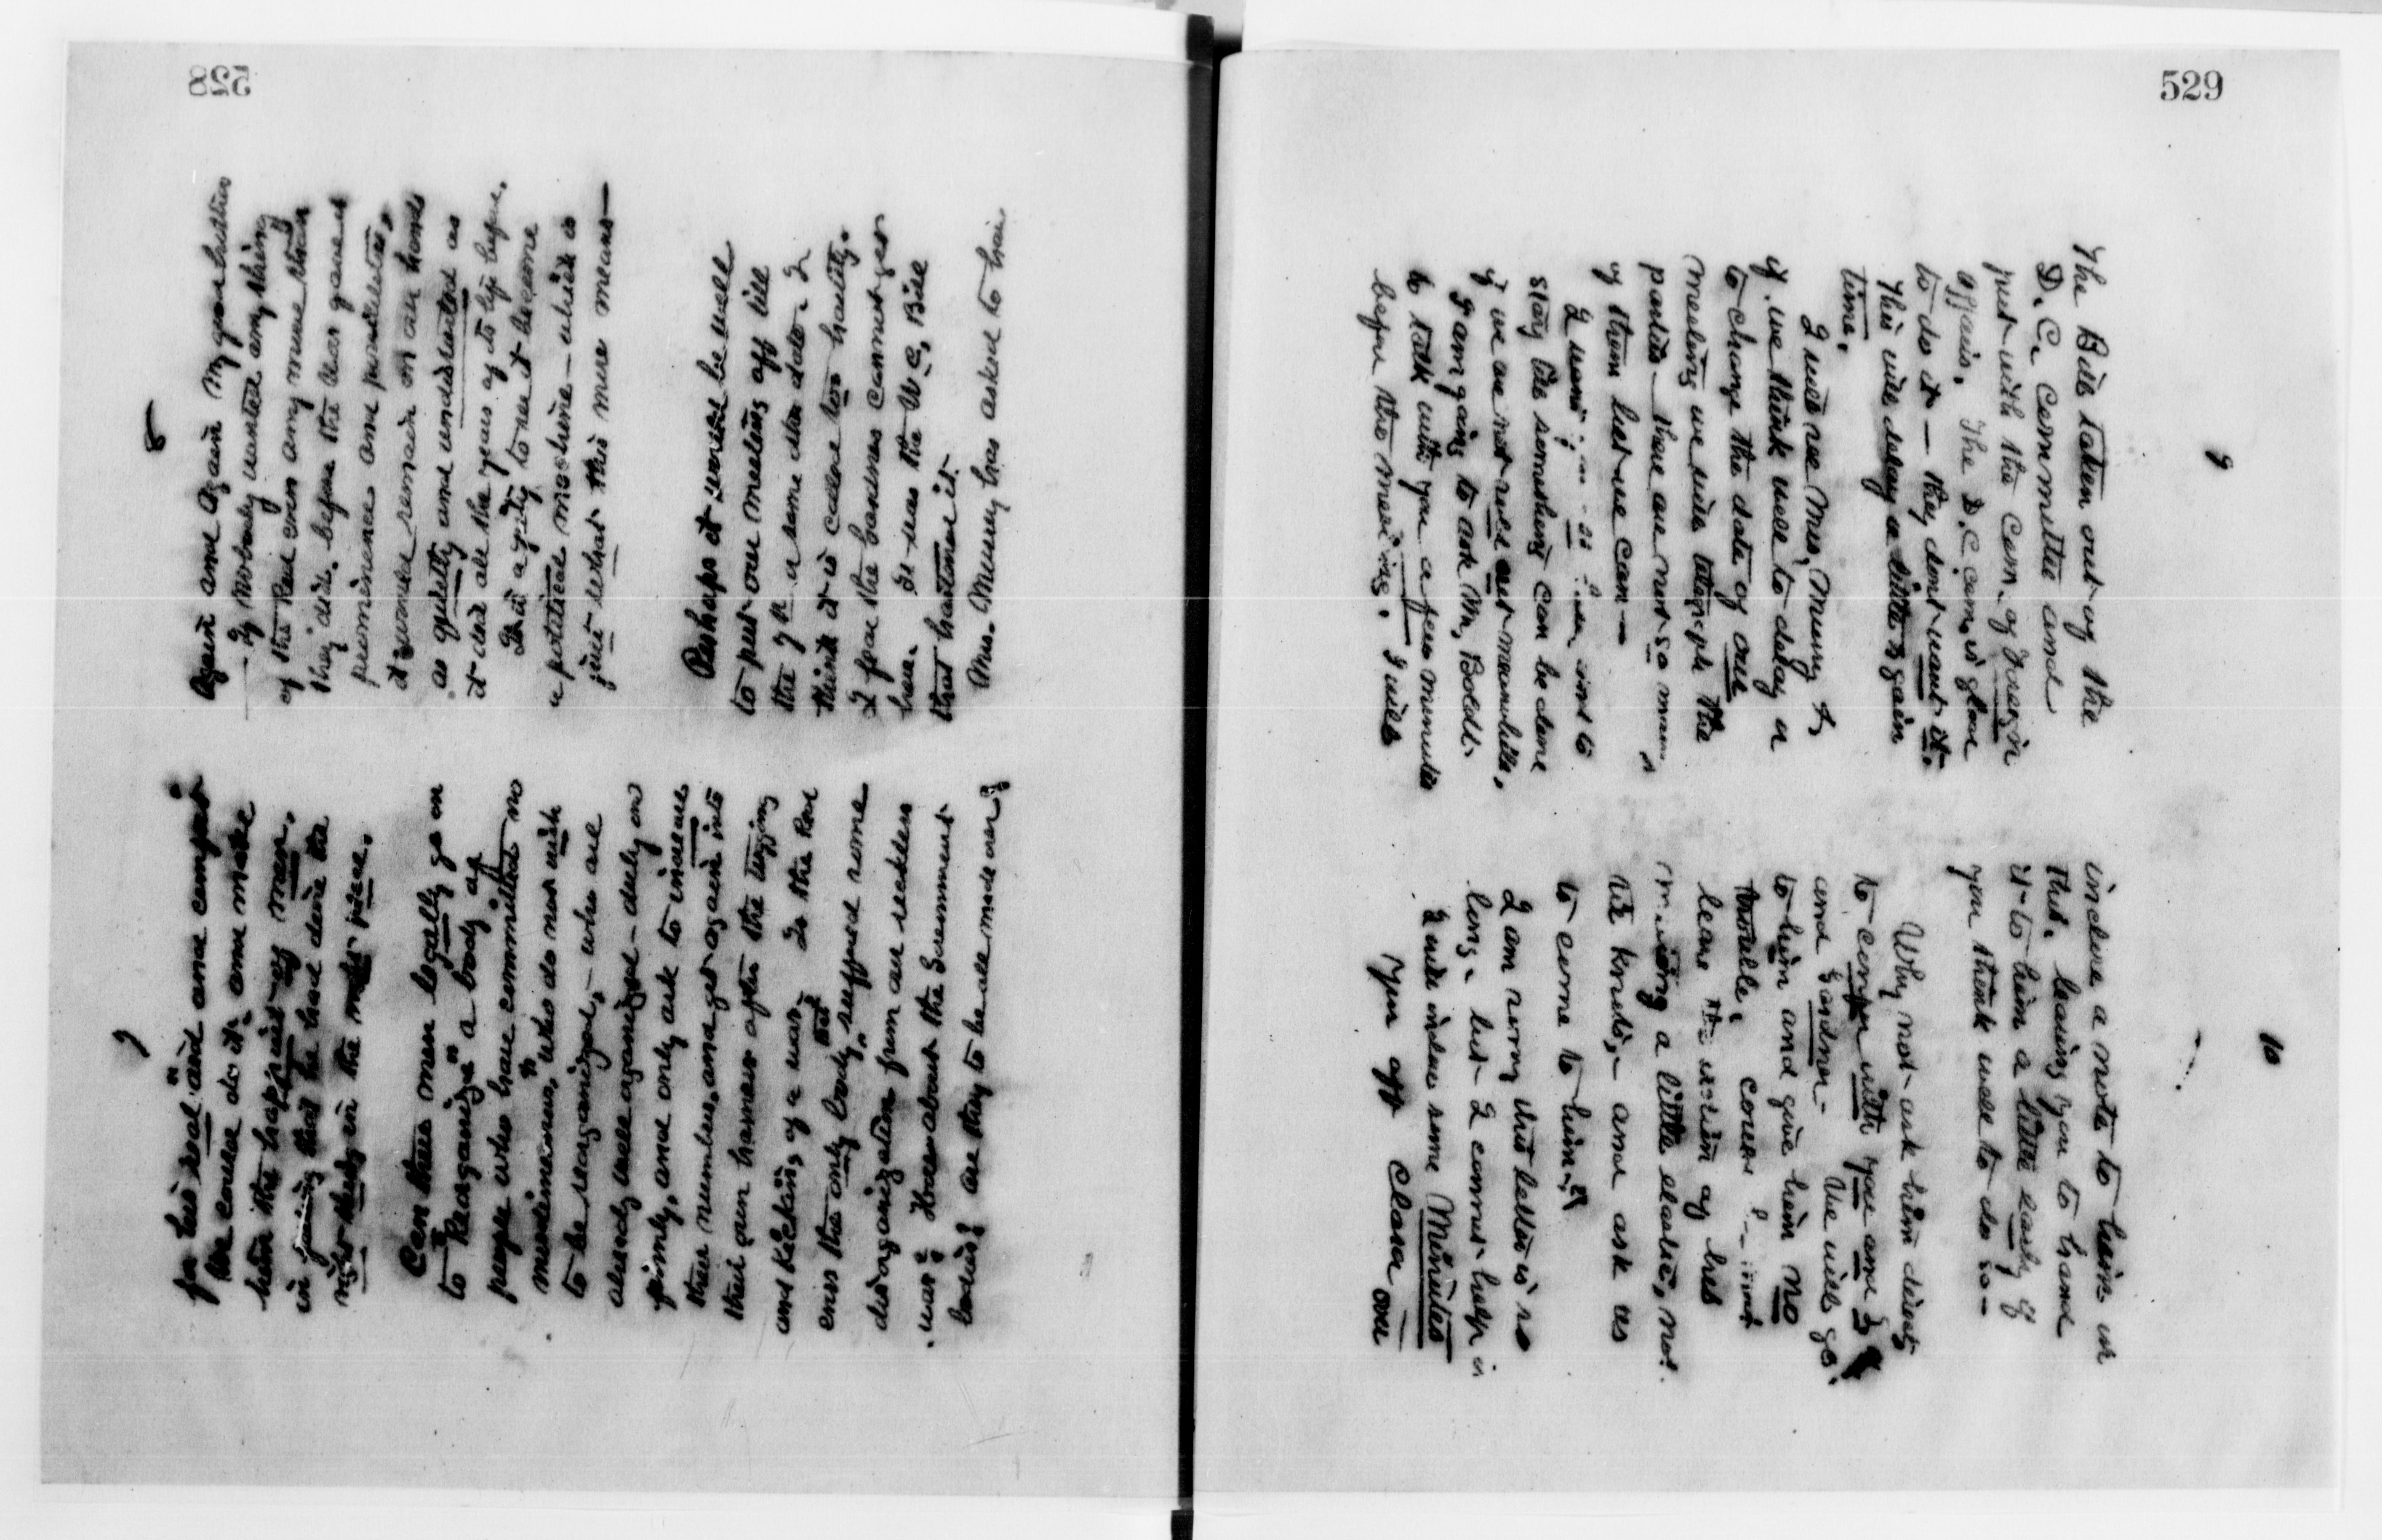 528
7
for his seal" and and
He could do it, and make
him the happiest of men,
in feeling that he had done the
right thing in the right place.
Can these men legally go on
to "Reorganize" a body of
people who have committed no
misdemeanor, who do not wish
to be reorganized, - who are
already well organized - duly and
firmly, and only ask to increase
their numbers, and get again into
their own harness after the tugging
and kicking of a war. Is the Red
cross the only body that suffered some
disorganization from our reckless
war? How about the Government
bodies? are they to be all made over?
8
Again and Again my good brother
- if Nobody wanted anything
of the Red cross any more than
they did before the war gave it
prominence and possibilities,
it would remain in our hands
as quietly and undisturbed as
it did all the years of its life before.
Is it a pity to see it become
a political machine - which is
just what this move means -
Perhaps it would be well
to put our meeting off till
the 9th or some other date. I
think it is called too hastily.
I fear the business cannot get
here. It was the W.C. Bill
that hastened it.
Mrs. Mussey has asked to have
529
9
The Bill taken out of the
D.C. Committee and
put with the Com. of Foreign
Affairs. The D.C. Com. is glad
to do it - they don't want it.
This will delay a little & gain
time.
I will see Mrs. Mussey &
if we think well to delay or
to change the date of our
meeting we will telegraph the
parties - there are not so many
of them but we can -
I want
stay till something can be done
if we are not ruled out meanwhile.
I am going to ask Mr. Boldt
to talk with you a few minutes
before the meeting. I will
10
inclose a note to him in
this, leaving you to hand
it to him a little early if
you think well to do so -
Why not ask him directly
to confer with you and I
and Gardner - We will go
to him and give him no
trouble,
leave the
a little elastic, not
and ask us
to come to him?"
I am sorry this letter is so
long - but I cannot help it
I will inclose some Minutes
Yours aff Clara over